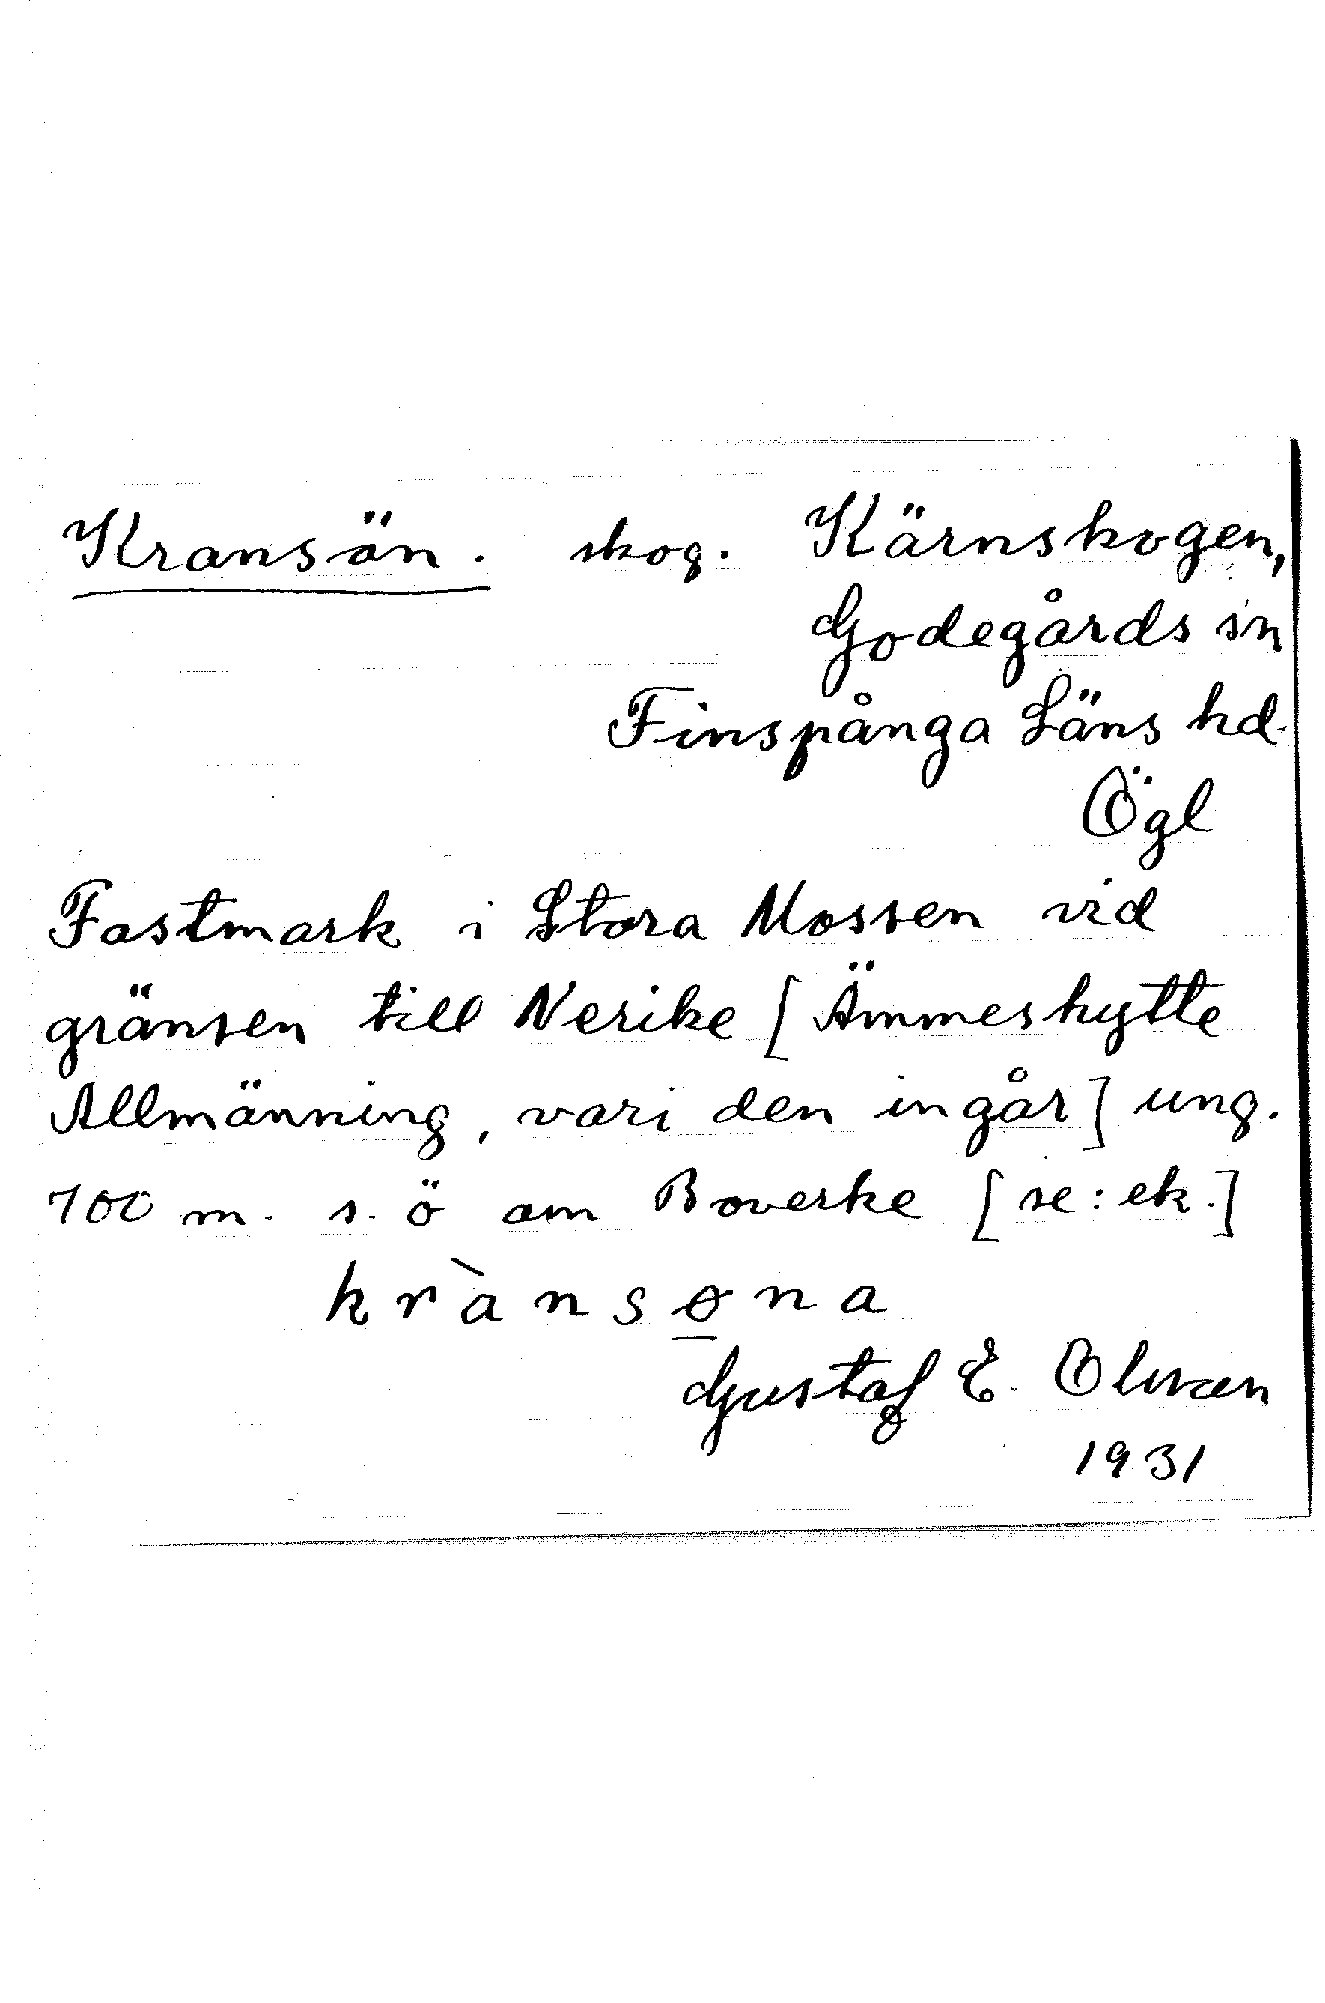 Kransön. skog. Kärnskogen,
Godegårds sn
Finspånga Läns hd.
Ögl
Fastmark i Stora Mossen vid
gränsen till Nerike [Ämmeshytte
Allmänning, vari den ingår] ung.
700 m. s. ö om Boverke [se: ek.]
krànsøna
Gustaf E. Olvæn
1931